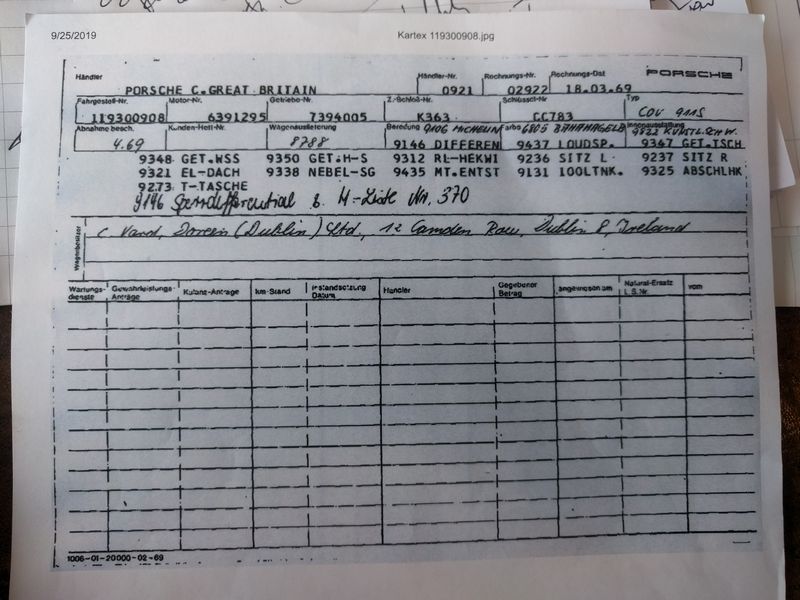 9/25/2019 Kartex 119300908.jpg
Händler Händler-Nr. Rechnungs-Nr. Rechnungs-Dat PORSCHE
PORSCHE C.GREAT BRITAIN 0921 02922 18.03.69
Fahrgestell-Nr. Motor-Nr. Getriebe-Nr. Z.-Schloß-Nr. Schlüssel-Nr. Typ
119300908 6391295 7394005 K363 CC783 COU 911S
Abnahme besch. Kunden-Heft-Nr. Wagenauslieferung Bereifung 9106 MICHELIN Farbe 6805 BAHAMAGELB Innenausstattung
4.69 8788 9146 DIFFEREN 9437 LOUDSP. 9367 GET.TSCH
9348 GET.WSS 9350 GET.H-S 9312 RL-HEKWI 9236 SITZ L 9237 SITZ R
9321 EL-DACH 9338 NEBEL-SG 9435 MT.ENTST 9131 100LTNK. 9325 ABSCHLHK
9273 T-TASCHE
9196 Sperrdifferential s. M-Liste Nr. 370
Wagenbesitzer
Doreen (Dublin) Ltd., 12 Camden Row, Dublin 8, Ireland
Wartungs-dienste Gewährleistungs-Anträge Kulanz-Anträge km-Stand Instandsetzung Datum Händler Gegebener Betrag angewiesen am Natural-Ersatz L.S.Nr. vom
1006-01-20000-02-69